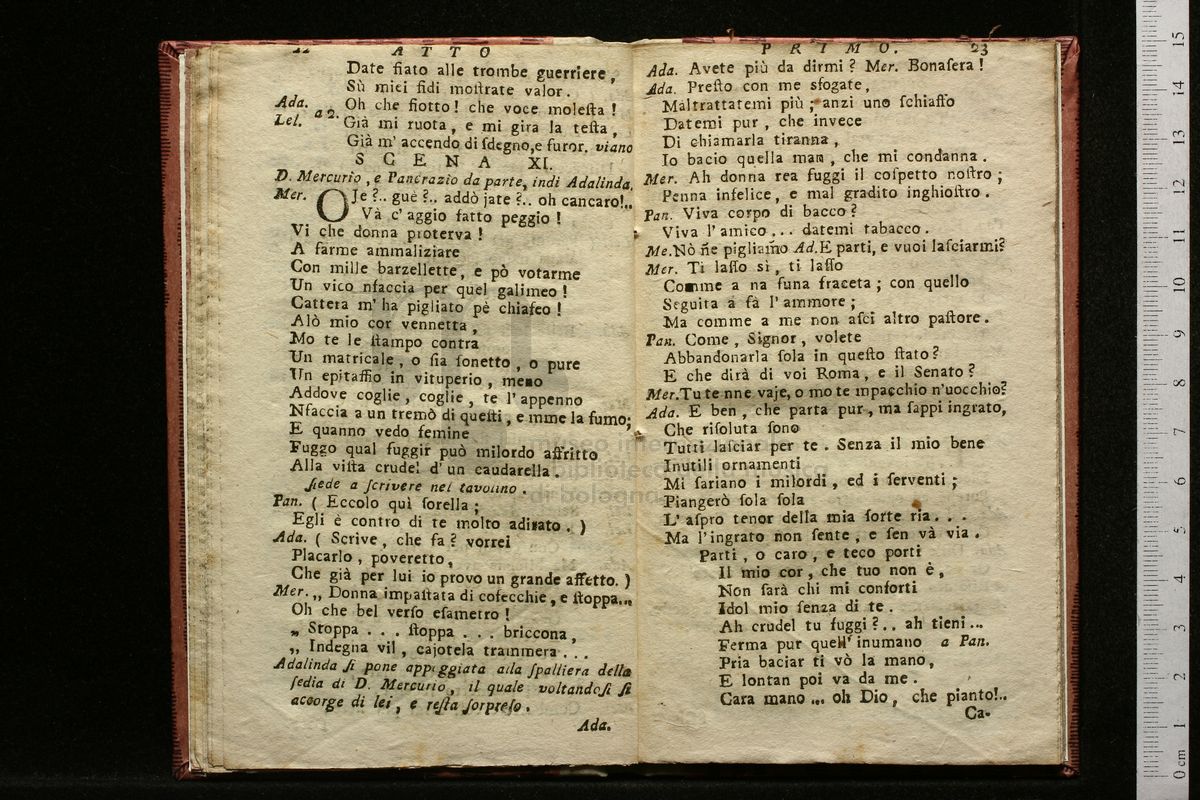 22 ATTO
Date fiato alle trombe guerriere,
Sù miei fidi moſtrate valor.
Ada. Oh che fiotto! che voce moleſta!
Lel. a 2. Già mi ruota, e mi gira la teſta,
Già m' accendo di ſdegno, e furor. viano
SCENA XI.
D. Mercurio, e Pancrazio da parte, indi Adalinda.
Mer. OJe?.. guè?.. addò jate?.. oh cancaro!..
Và c' aggio fatto peggio!
Vi che donna proterva!
A farme ammaliziare
Con mille barzellette, e pò votarme
Un vico nfaccia per quel galimeo!
Cattera m' ha pigliato pè chiafeo!
Alò mio cor vennetta,
Mo te le ſtampo contra
Un matricale, o ſia ſonetto, o pure
Un epitaffio in vituperio, meno
Addove coglie, coglie, te l' appenno
Nfaccia a un tremò di queſti, e mme la fumo;
E quanno vedo femine
Fuggo qual fuggir può milordo affritto
Alla viſta crudel d' un caudarella.
ſiede a ſcrivere nel tavolino.
Pan. ( Eccolo quì ſorella;
Egli è contro di te molto adirato. )
Ada. ( Scrive, che fa? vorrei
Placarlo, poveretto,
Che già per lui io provo un grande affetto. )
Mer. „ Donna impaſtata di cofecchie, e ſtoppa...
Oh che bel verſo eſametro!
„ Stoppa . . . ſtoppa . . . briccona,
„ Indegna vil, cajotela trammera . . .
Adalinda ſi pone appoggiata alla ſpalliera della
ſedia di D. Mercurio, il quale voltandoſi ſi
accorge di lei, e reſta ſorpreſo.
Ada.
PRIMO. 23
Ada. Avete più da dirmi? Mer. Bonaſera!
Ada. Preſto con me sfogate,
Maltrattatemi più; anzi uno ſchiaffo
Datemi pur, che invece
Di chiamarla tiranna,
Io bacio quella man, che mi condanna.
Mer. Ah donna rea fuggi il coſpetto noſtro;
Penna infelice, e mal gradito inghioſtro.
Pan. Viva corpo di bacco?
Viva l' amico... datemi tabacco.
Me. Nò ñe pigliamo Ad. E parti, e vuoi laſciarmi?
Mer. Ti laſſo sì, ti laſſo
Comme a na funa fraceta; con quello
Seguita a fà l' ammore;
Ma comme a me non aſci altro paſtore.
Pan. Come, Signor, volete
Abbandonarla ſola in queſto ſtato?
E che dirà di voi Roma, e il Senato?
Mer. Tu te nne vaje, o mo te mpacchio n'uocchio?
Ada. E ben, che parta pur, ma ſappi ingrato,
Che riſoluta ſono
Tutti laſciar per te. Senza il mio bene
Inutili ornamenti
Mi ſariano i milordi, ed i ſerventi;
Piangerò ſola ſola
L' aſpro tenor della mia ſorte ria...
Ma l' ingrato non ſente, e ſen và via.
Parti, o caro, e teco porti
Il mio cor, che tuo non è,
Non ſarà chi mi conforti
Idol mio ſenza di te.
Ah crudel tu fuggi?.. ah tieni...
Ferma pur quell' inumano a Pan.
Pria baciar ti vò la mano,
E lontan poi va da me.
Cara mano ... oh Dio, che pianto!..
Ca-
museo internazionale
e biblioteca della musica
di bologna
0 cm 1 2 3 4 5 6 7 8 9 10 11 12 13 14 15